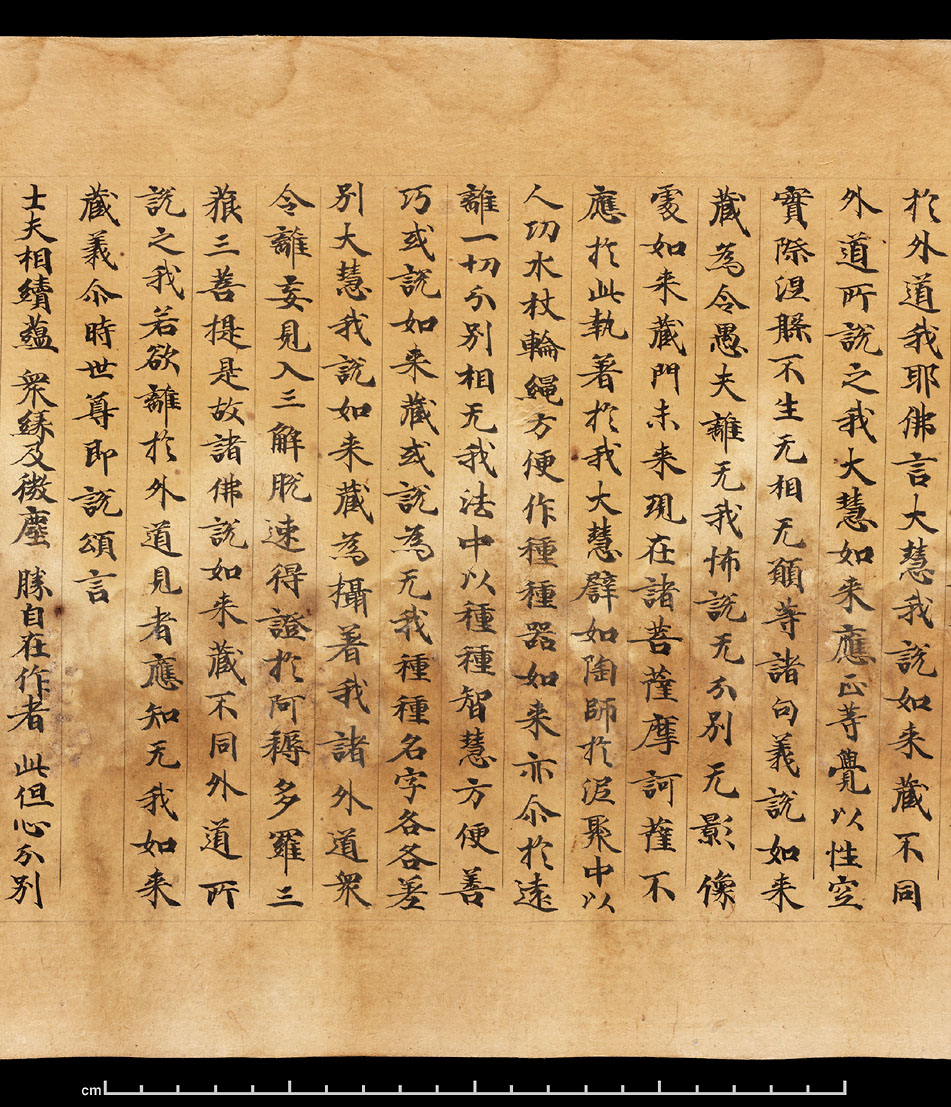 於外道我耶佛言大慧我說如来藏不同
外道所說之我大慧如来應正等覺以性空
實際涅槃不生无相无願等諸句義說如来
藏為令愚夫離无我怖說无分別无影像
處如来藏門未来現在諸菩薩摩訶薩不
應於此執著於我大慧譬如陶師於泥聚中以
人功水杖輪繩方便作種種器如来亦尒於遠
離一切分別相无我法中以種種智慧方便善
巧或說如来藏或說為无我種種名字各各差
別大慧我說如来藏為攝著我諸外道衆
令離妄見入三解脫速得證於阿耨多羅三
藐三菩提是故諸佛說如来藏不同外道所
說之我若欲離於外道見者應知无我如来
藏義尒時世尊即說頌言
士夫相續蘊 衆緣及微塵 勝自在作者 此但心分別
cm